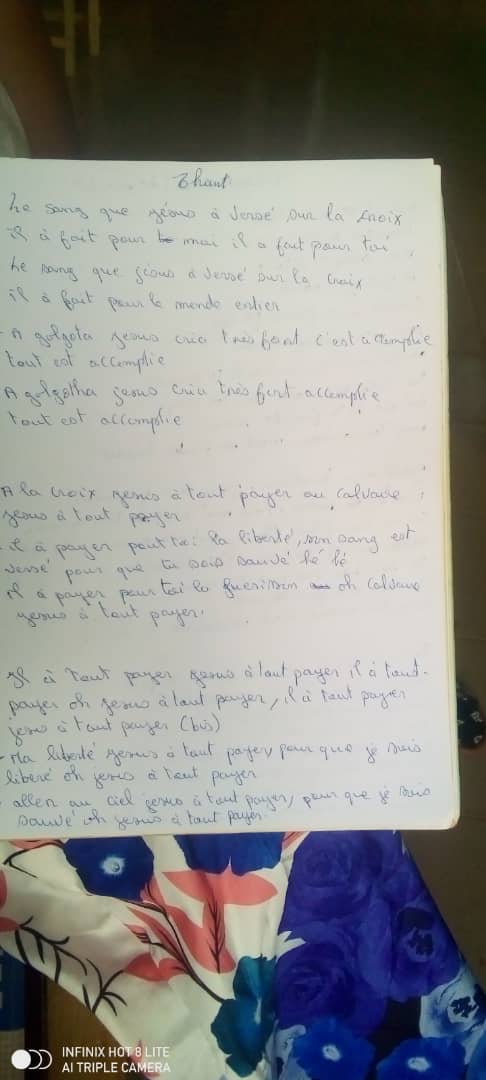 Chant
Le sang que jésus à versé sur la croix
il à fait pour moi il a fait pour toi
Le sang que jésus à versé sur la croix
il à fait pour le monde entier
- A golgota jesus cria très fort c'est accomplie
tout est accomplie
A golgotha jesus cria très fort accomplie
tout est accomplie
A la croix jesus à tout payer au calvaire
jesus à tout payer
- il à payer pour toi la liberté, son sang est
versé pour que tu sois sauvé hé hé
il à payer pour toi la guerison oh calvaire
jesus à tout payer.
Il à tout payer jesus à tout payer il à tout
payer oh jesus à tout payer, il à tout payer
jesus à tout payer (bis)
- Ma liberté jesus à tout payer, pour que je sois
liberé oh jesus à tout payer
- aller au ciel jesus à tout payer, pour que je sois
sauvé oh jesus à tout payer.
INFINIX HOT 8 LITE
AI TRIPLE CAMERA